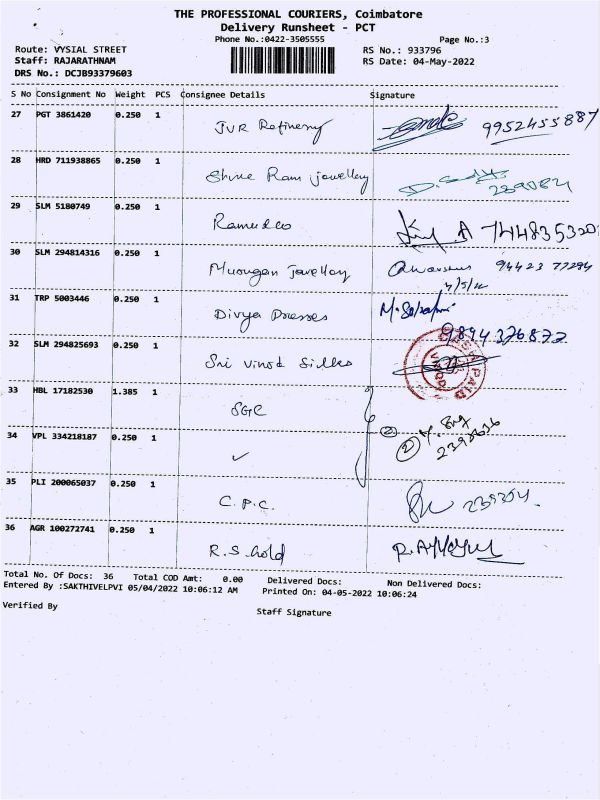 THE PROFESSIONAL COURIERS, Coimbatore
Delivery Runsheet - PCT
Phone No.:0422-3505555 Page No.:3
Route: VYSIAL STREET RS No.: 933796
Staff: RAJARATHNAM RS Date: 04-May-2022
DRS No.: DCJB93379603
S No Consignment No Weight PCS Consignee Details Signature
27 PGT 3861420 0.250 1 JVR Refinery 9952455887
28 HRD 711938865 0.250 1 Shree Ram jewellery
29 SLM 5180749 0.250 1 Ramudeo
30 SLM 294814316 0.250 1 Murugan Jewellery 94423 77294
31 TRP 5003446 0.250 1 Divya Dresses
9894376872
32 SLM 294825693 0.250 1 Sri Vinod Silks
33 HBL 17182530 1.385 1 SGC
34 VPL 334218187 0.250 1 ✓ ②
35 PLI 200065037 0.250 1 C.P.C.
36 AGR 100272741 0.250 1 R.S. hold
Total No. Of Docs: 36 Total COD Amt: 0.00 Delivered Docs: Non Delivered Docs:
Entered By :SAKTHIVELPVI 05/04/2022 10:06:12 AM Printed On: 04-05-2022 10:06:24
Verified By Staff Signature